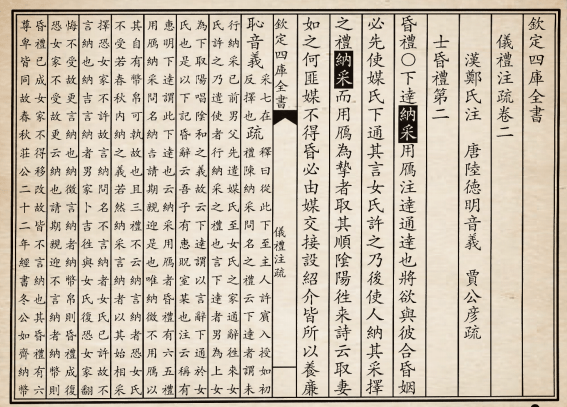 欽定四庫全書
儀禮注疏卷二
漢鄭氏注 唐陸德明音義 賈公彥疏
士昏禮第二
昏禮〇下達納采用鴈注達通達也將欲與彼合昏姻
必先使媒氏下通其言女氏許之乃後使人納其采擇
之禮納采而用鴈為摯者取其順陰陽徃来詩云取妻
如之何匪媒不得昏必由媒交接設紹介皆所以養廉
欽定四庫全書 儀禮注疏
恥音義采七在反擇也疏釋曰從此下至主人許賓入授如初
禮陳納采問名之禮云下達者謂未
行納采已前男父先遣媒氏至女氏之家通辭徃來女
氏許之乃遣使者行納采之禮也言下達者男為上女
為下取陽唱陰和之義故云下達謂以言辭下通於女
氏也是以下記昏辭云吾子有惠貺室某也注云稱有
惠明下達謂此下達也云納采用鴈者昏禮有六五禮
用鴈納采問名納吉請期親迎是也唯納徵不用鴈以
其自有幣帛可執故也且三禮不云納言納者恐女氏
不受若春秋内納之義若然納采言納者以其始相采
擇恐女家不許故言納問名不言納者女氏已許故不
言納也納吉言納者男家卜吉徃與女氏復恐女家翻
悔不受故更言納也納徵言納者納幣帛則昏禮成復
恐女家不受故更云納也請期親迎不言納者納幣則
昏禮已成女家不得移改故皆不言納也其昏禮有六
尊卑皆同故春秋莊公二十二年經書冬公如齊納幣